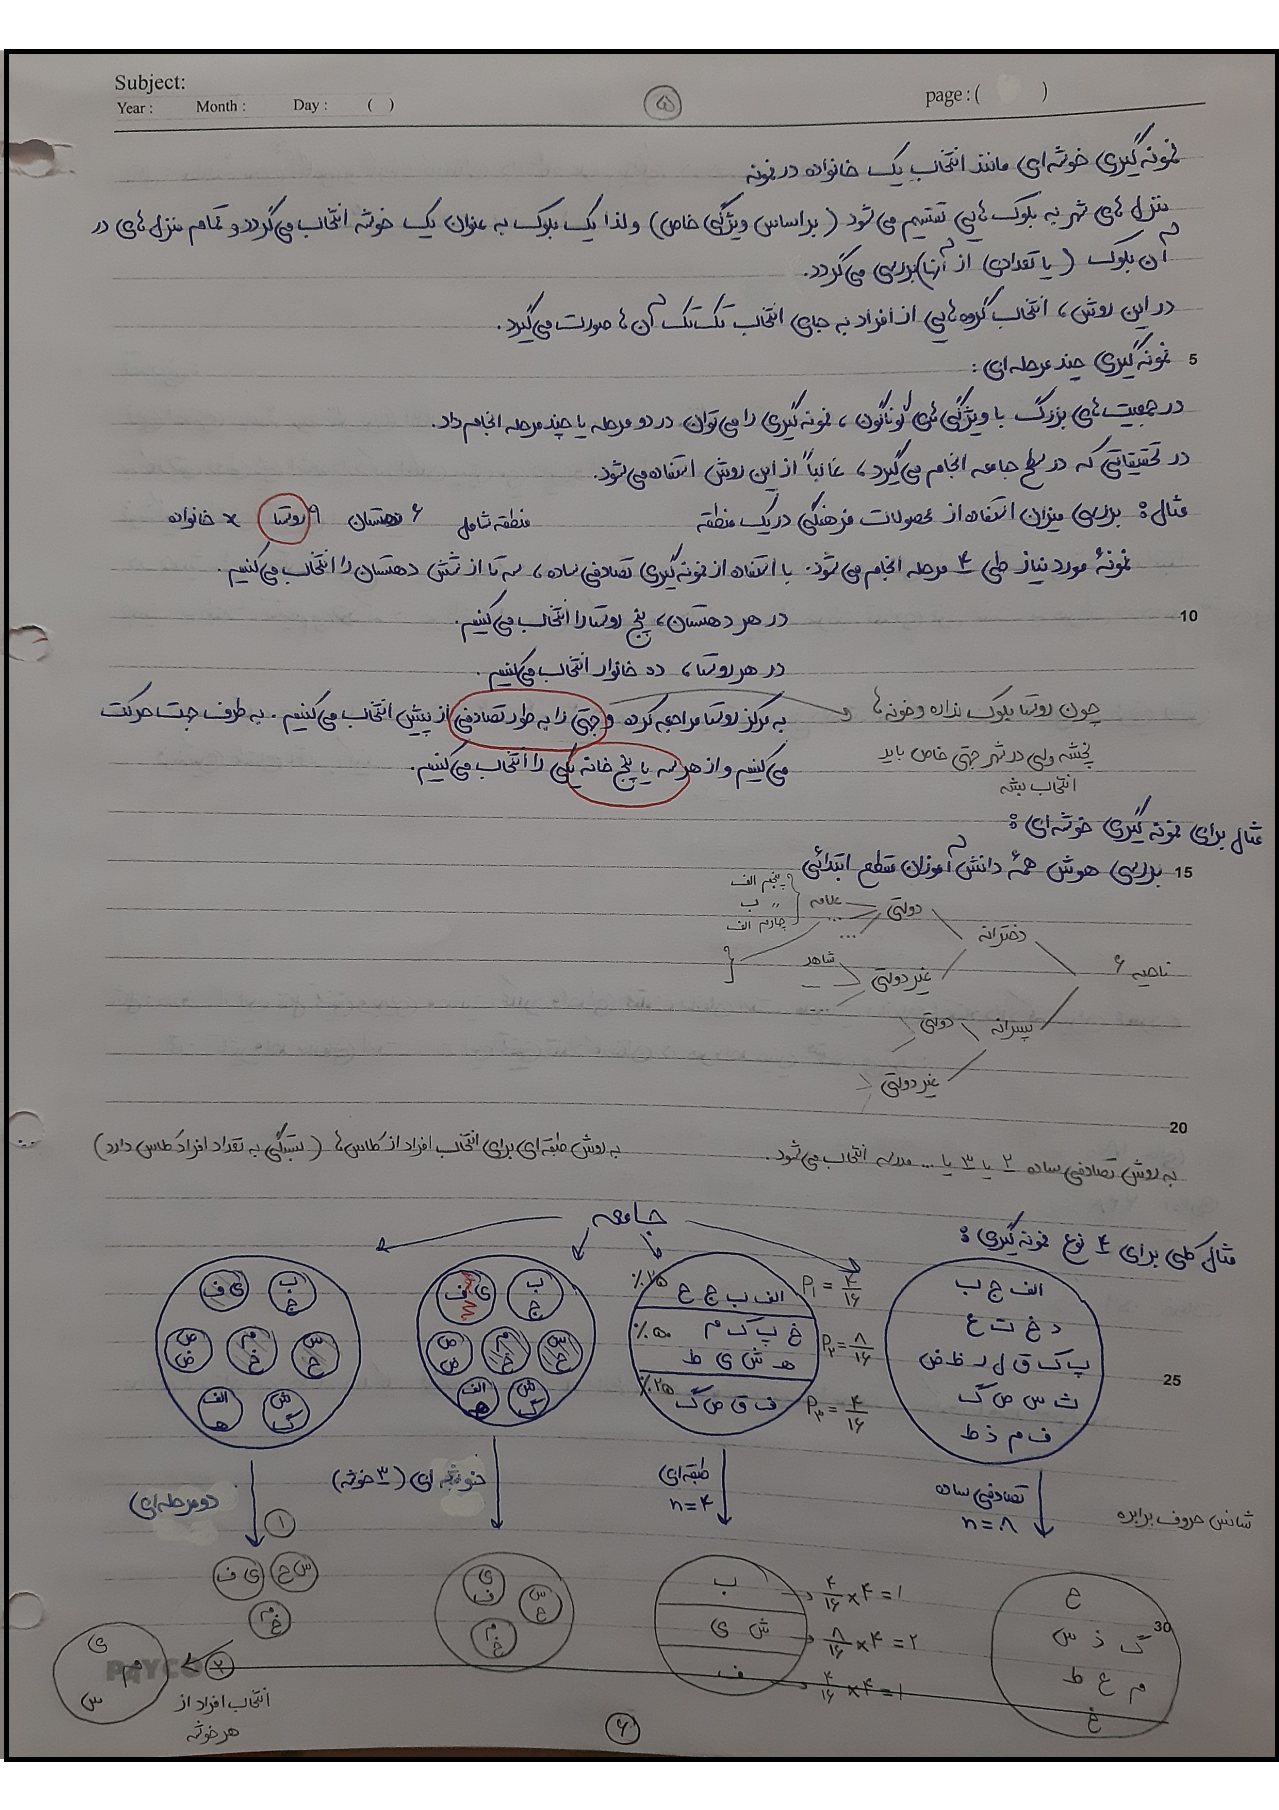 Subject:
Year : Month : Day : ( )
۵
page : ( )
نمونه گیری خوشه‌ای مانند انتخاب یک خانواده در نمونه
منزل های شهر به بلوک هایی تقسیم می‌شود ( براساس ویژگی خاص ) ولذا یک بلوک به عنوان یک خوشه انتخاب می‌گردد و تمام منزل های در
آن بلوک ( یا تعدادی از آنها ) بررسی می‌گردد.
در این روش ، انتخاب گروه هایی از افراد به جای انتخاب تک تک آن ها صورت می‌گیرد .
5 نمونه گیری چند مرحله‌ای :
در جمعیت های بزرگ با ویژگی های گوناگون ، نمونه گیری را می‌توان در دو مرحله یا چند مرحله انجام داد.
در تحقیقاتی که در سطح جامعه انجام می‌گیرد ، غالباً از این روش استفاده می‌شود.
مثال : بررسی میزان استفاده از محصولات فرهنگی در یک منطقه منطقه شامل ۶ دهستان ۹ روستا x خانواده
نمونهٔ مورد نیاز طی ۴ مرحله انجام می‌شود. با استفاده از نمونه گیری تصادفی ساده ، سه تا از شش دهستان را انتخاب می‌کنیم .
10 در هر دهستان ، پنج روستا را انتخاب می‌کنیم.
در هر روستا ، ده خانوار انتخاب می‌کنیم .
به مرکز روستا مراجعه کرده و جهتی را به طور تصادفی از پیش انتخاب می‌کنیم . به طرف جهت حرکت
می‌کنیم و از هر سه یا پنج خانه یکی را انتخاب می‌کنیم.
چون روستا بلوک نداره و خونه ها
پخشه ولی در شهر جهتی خاص باید
انتخاب بشه
مثال برای نمونه گیری خوشه‌ای :
15 بررسی هوش همهٔ دانش آموزان مقطع ابتدائی
ناحیه ۶
دخترانه
دولتی
علامه
پنجم الف
〃 ب
چهارم الف
...
غیر دولتی
شاهد
...
پسرانه
دولتی
غیر دولتی
20
به روش تصادفی ساده ۲ یا ۳ یا ... مدرسه انتخاب می‌شود .
به روش طبقه‌ای برای انتخاب افراد از کلاس ها ( بستگی به تعداد افراد کلاس دارد )
مثال کلی برای ۴ نوع نمونه گیری :
جامعه
الف ج ب
د خ ت ع
پ ک ق ل ر ظ ض
ث س ص گ
ف م ذ ط
٪۲۵ الف ب ج ع P₁ = ۴/۱۶
٪۵۰ خ پ ک م P₂ = ۸/۱۶
ه ش ی ط
٪۲۵ ف ق ص گ P₃ = ۴/۱۶
ب ج
ی ف
س ح
م خ
ص ض
ش گ
الف ه
ب ج
ی ف
س ح
م خ
ص ض
ش گ
الف ه
25
شانس حروف برابره
تصادفی ساده
n = ۸
طبقه‌ای
n = ۴
خوشه ای ( ۳ خوشه )
دو مرحله‌ای
ع
30 گ ذ س
م ع ط
غ
ب ۴/۱۶ × ۴ = ۱
ش ی ۸/۱۶ × ۴ = ۲
ف ۴/۱۶ × ۴ = ۱
ی ف
س ح
م خ
۱
س ح
ی ف
م خ
۲
انتخاب افراد از
هر خوشه
ی
م
س
PAYCO
۶